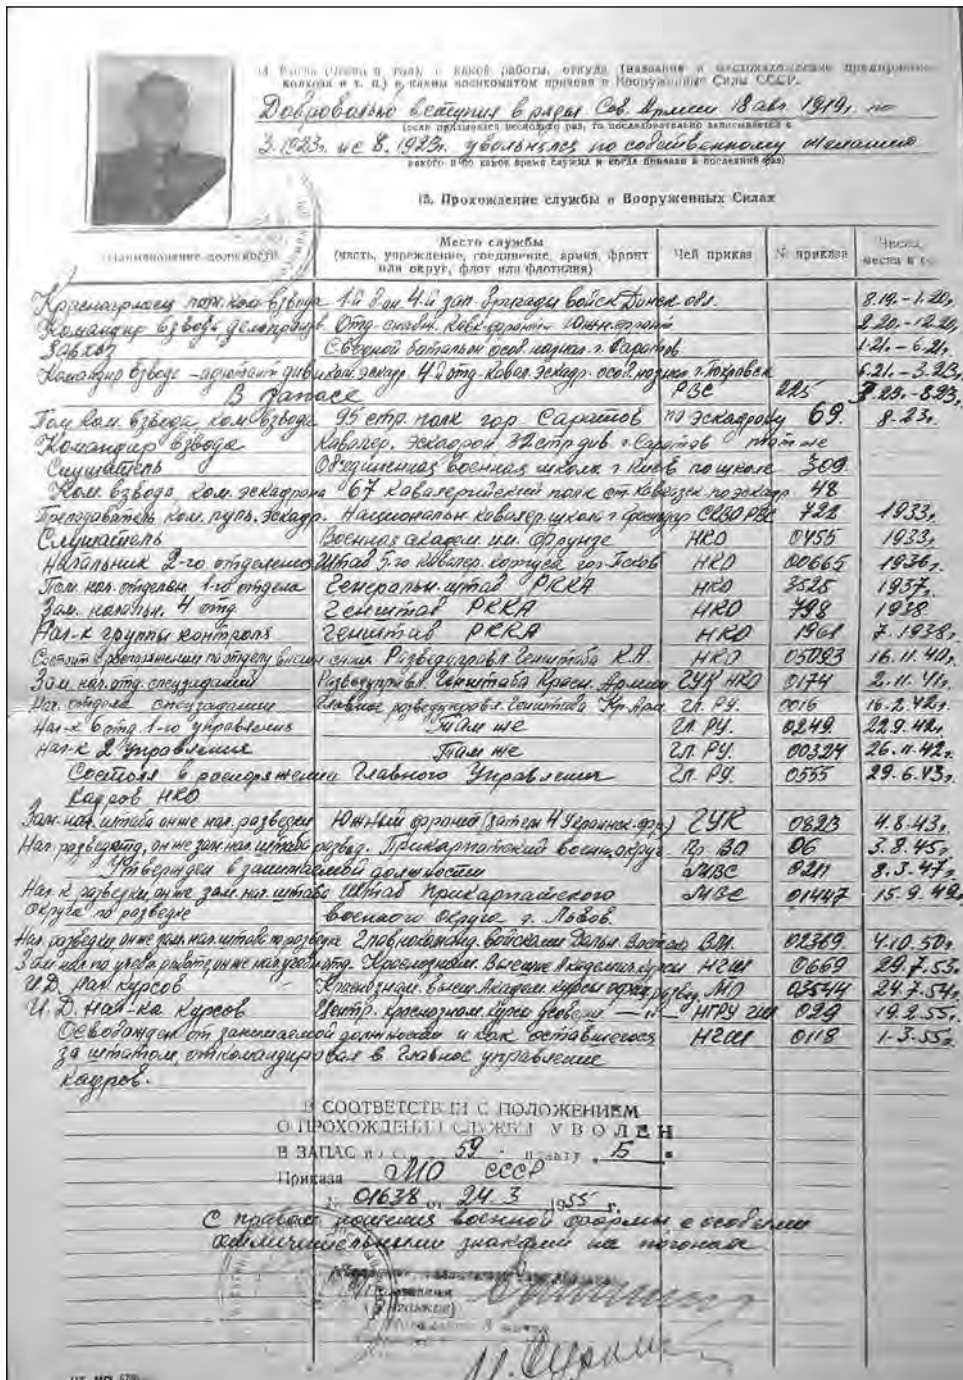 14. какой работы, откуда (название и местонахождение предприятия,
колхоза и т. п.) и каким военкоматом призван в Вооруженные Силы СССР.
Добровольно вступил в ряды Сов. Армии 18 авг 1919г. по
(если призывался несколько раз, то последовательно записывается с
3.1923г. и с 8.1923г. увольнялся по собственному желанию
какого и по какое время служил и когда призван в последний раз)
15. Прохождение службы в Вооруженных Силах
Наименование должности
Место службы
(часть, учреждение, соединение, армия, фронт
или округ, флот или флотилия)
Чей приказ
№ приказа
Числа,
месяц и
Красноармеец пом. ком взвода 1-й 4-й зап. бригады войск Донск обл. 8.19.-1.20г
Командир взвода делопроизв. Отд. снабж. Южн.фронт 2.20.-12.20г
Завхоз Сводной батальон особ. назнач. г. Саратов 1.21.-6.21г
Командир взвода - адъютант эскадр. 4-й отд. кавал. эскадр. особ. назнач. г. Покровск 6.21.-3.23г
В запасе РВС 225 3.23.-8.23г
Пом. ком. взвода, ком. взвода 95 стр. полк гор. Саратов по эскадрону 69. 8-23г.
Командир взвода Кавалер. эскадрон 32 стр див. г. Саратов там же
Слушатель Объединенная военная школа г. Киев по школе 309.
Ком. взвода, ком. эскадрона 67 кавалерийский полк ст. Кавказск. по эскадр 48
Преподаватель ком. пуль. эскадр. Национальн. кавалер. школа г. Краснодар СКВО РВС 722 1933г.
Слушатель Военная академ. им. Фрунзе НКО 0455 1933г.
Начальник 2-го отделения Штаб 5-го кавалер. корпуса гор. Псков НКО 00665 1936г.
Пом. нач. отделен. 1-го отдела Генеральн. штаб РККА НКО 3525 1937г.
Зам. начальн. 4 отд. Генштаб РККА НКО 798 1938
Нач-к группы контроля Генштаб РККА НКО 1961 7.1938г.
Состоит в распоряжении по отделу Разведуправл. Генштаба К.А. НКО 05093 16.11.40г
Зам. нач. отд. спецзаданий Разведуправл. Генштаба Красн. Армии ГУК НКО 0174 2.11.41г.
Нач. отдела спецзаданий Главное разведуправл. Генштаба Кр. Арм. Гл. РУ. 0016 16.2.42г.
Нач-к 6 отд. 1-го управления Там же Гл. РУ. 0249 22.9.42г
Нач-к 2 управления Там же Гл. РУ. 00324 26.11.42г.
Состоял в распоряжении Главного Управления Гл. РУ. 0555 29.6.43г.
Кадров НКО
Зам. нач. штаба он же нач. разведки Южный фронт (затем 4 Украинск. фр.) ГУК 0823 4.8.43г.
Нач. разведотд., он же зам. нач. штаба развед. Прикарпатский военн. округ Пр. ВО 06 3.8.45г
Утвержден в занимаемой должности МВС 0211 8.3.47г.
Нач-к разведки, он же зам. нач. штаба Штаб Прикарпатского МВС 01447 15.9.49г
Округа по разведке военного округа г. Львов.
Нач. разведки он же зам. нач. штаба по разведке Главнокоманд. войсками Дальн. Востока ВМ. 02369. 4.10.50г
Зам нач. по учебн. работе, он же нач. учебн. отд. Краснознам. Высшие Академич. курсы НГШ 0669 29.7.53г.
И.Д. нач. курсов Краснознам. высш. Академ. курсы офиц. развед. МО 03544 24.7.54г
И.Д. нач-ка курсов Центр. краснознам. курсы усоверш — " — НГРУ ГШ 029 19.2.55г.
Освобожден от занимаемой должности и как оставшегося НГШ 0118 1-3.55г
за штатом, откомандирован в Главное управление
кадров.
В СООТВЕТСТВИИ С ПОЛОЖЕНИЕМ
О ПРОХОЖДЕНИИ СЛУЖБЫ УВОЛЕН
В ЗАПАС по ст. 59 пункту 15
Приказа МО СССР
№ 01638 от 24.3 1955 г.
С правом ношения военной формы с особыми
отличительными знаками на погонах